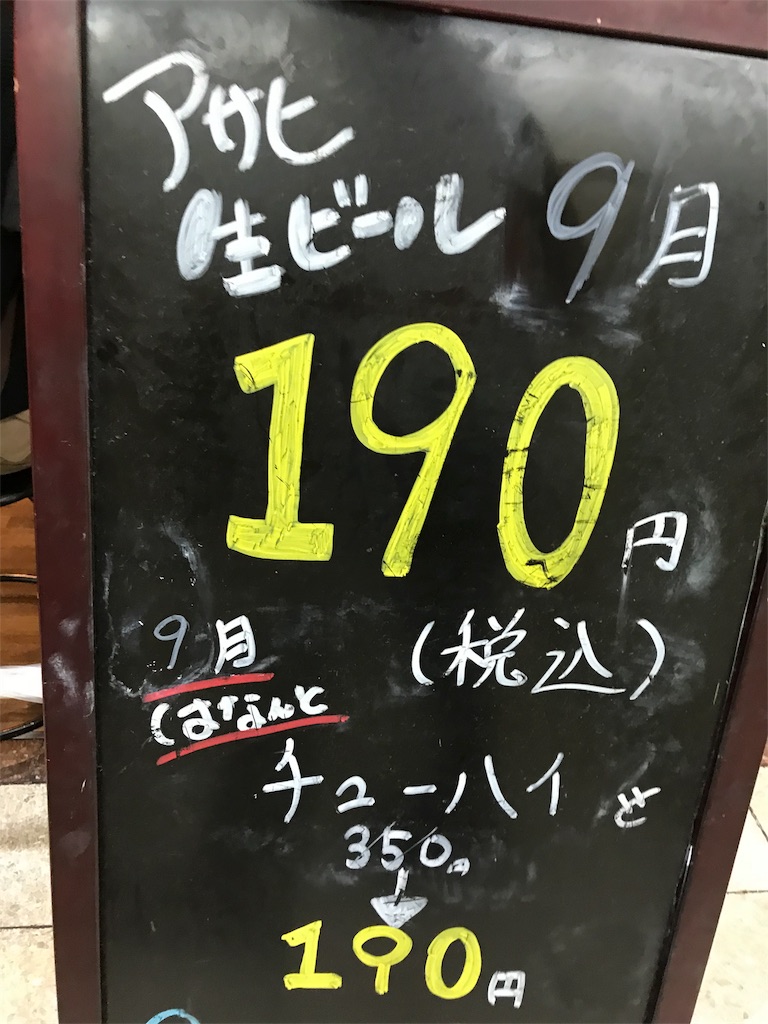 アサヒ
生ビール 9月
190円
(税込)
9月
はなんと
チューハイも
350円
190円